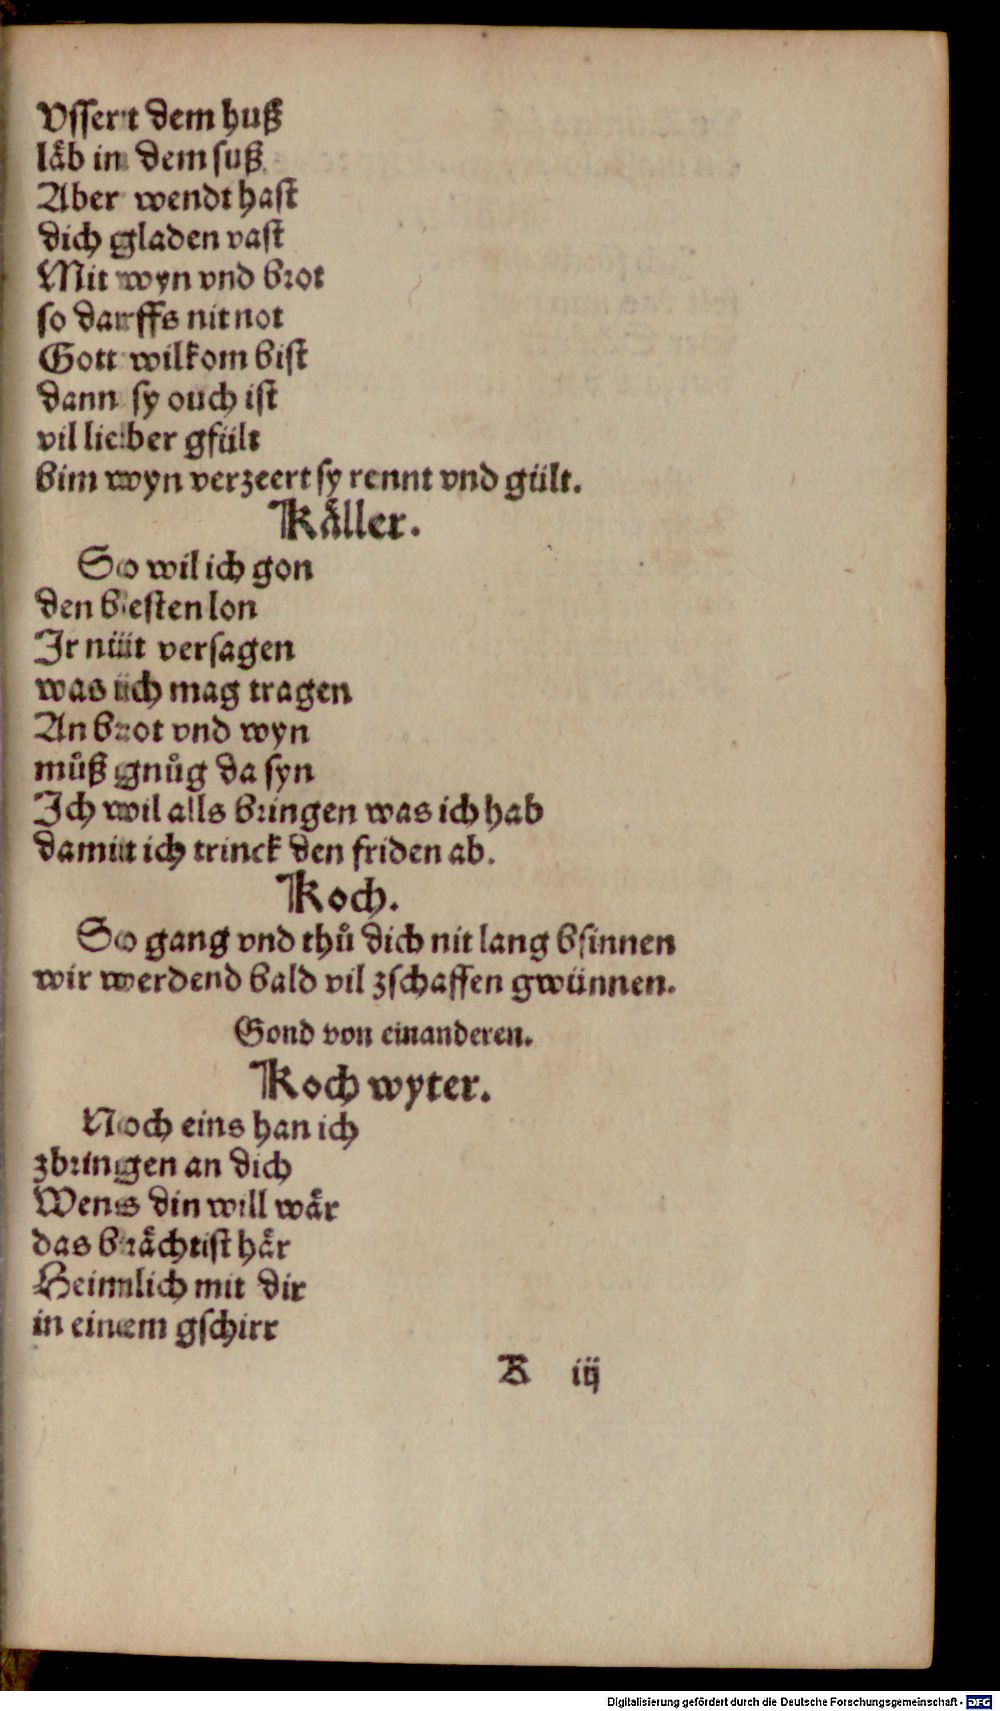 Vssert dem huß
läb in dem suß
Aber wendt hast
dich gladen vast
Mit wyn vnd brot
so darffs nit not
Gott wilkom bist
dann sy ouch ist
vil lieber gfült
bim wyn verzeert sy rennt vnd gült.
Käller.
So wil ich gon
den besten lon
Ir nüt versagen
was ich mag tragen
An brot vnd wyn
můß gnůg da syn
Ich wil alls bringen was ich hab
damit ich trinck den friden ab.
Koch.
So gang vnd thů dich nit lang bsinnen
wir werdend bald vil zschaffen gwünnen.
Gond von einanderen.
Koch wyter.
Noch eins han ich
zbringen an dich
Wens din will wär
das brächtist här
Heimlich mit dir
in einem gschirr
B iij
Digitalisierung gefördert durch die Deutsche Forschungsgemeinschaft - DFG